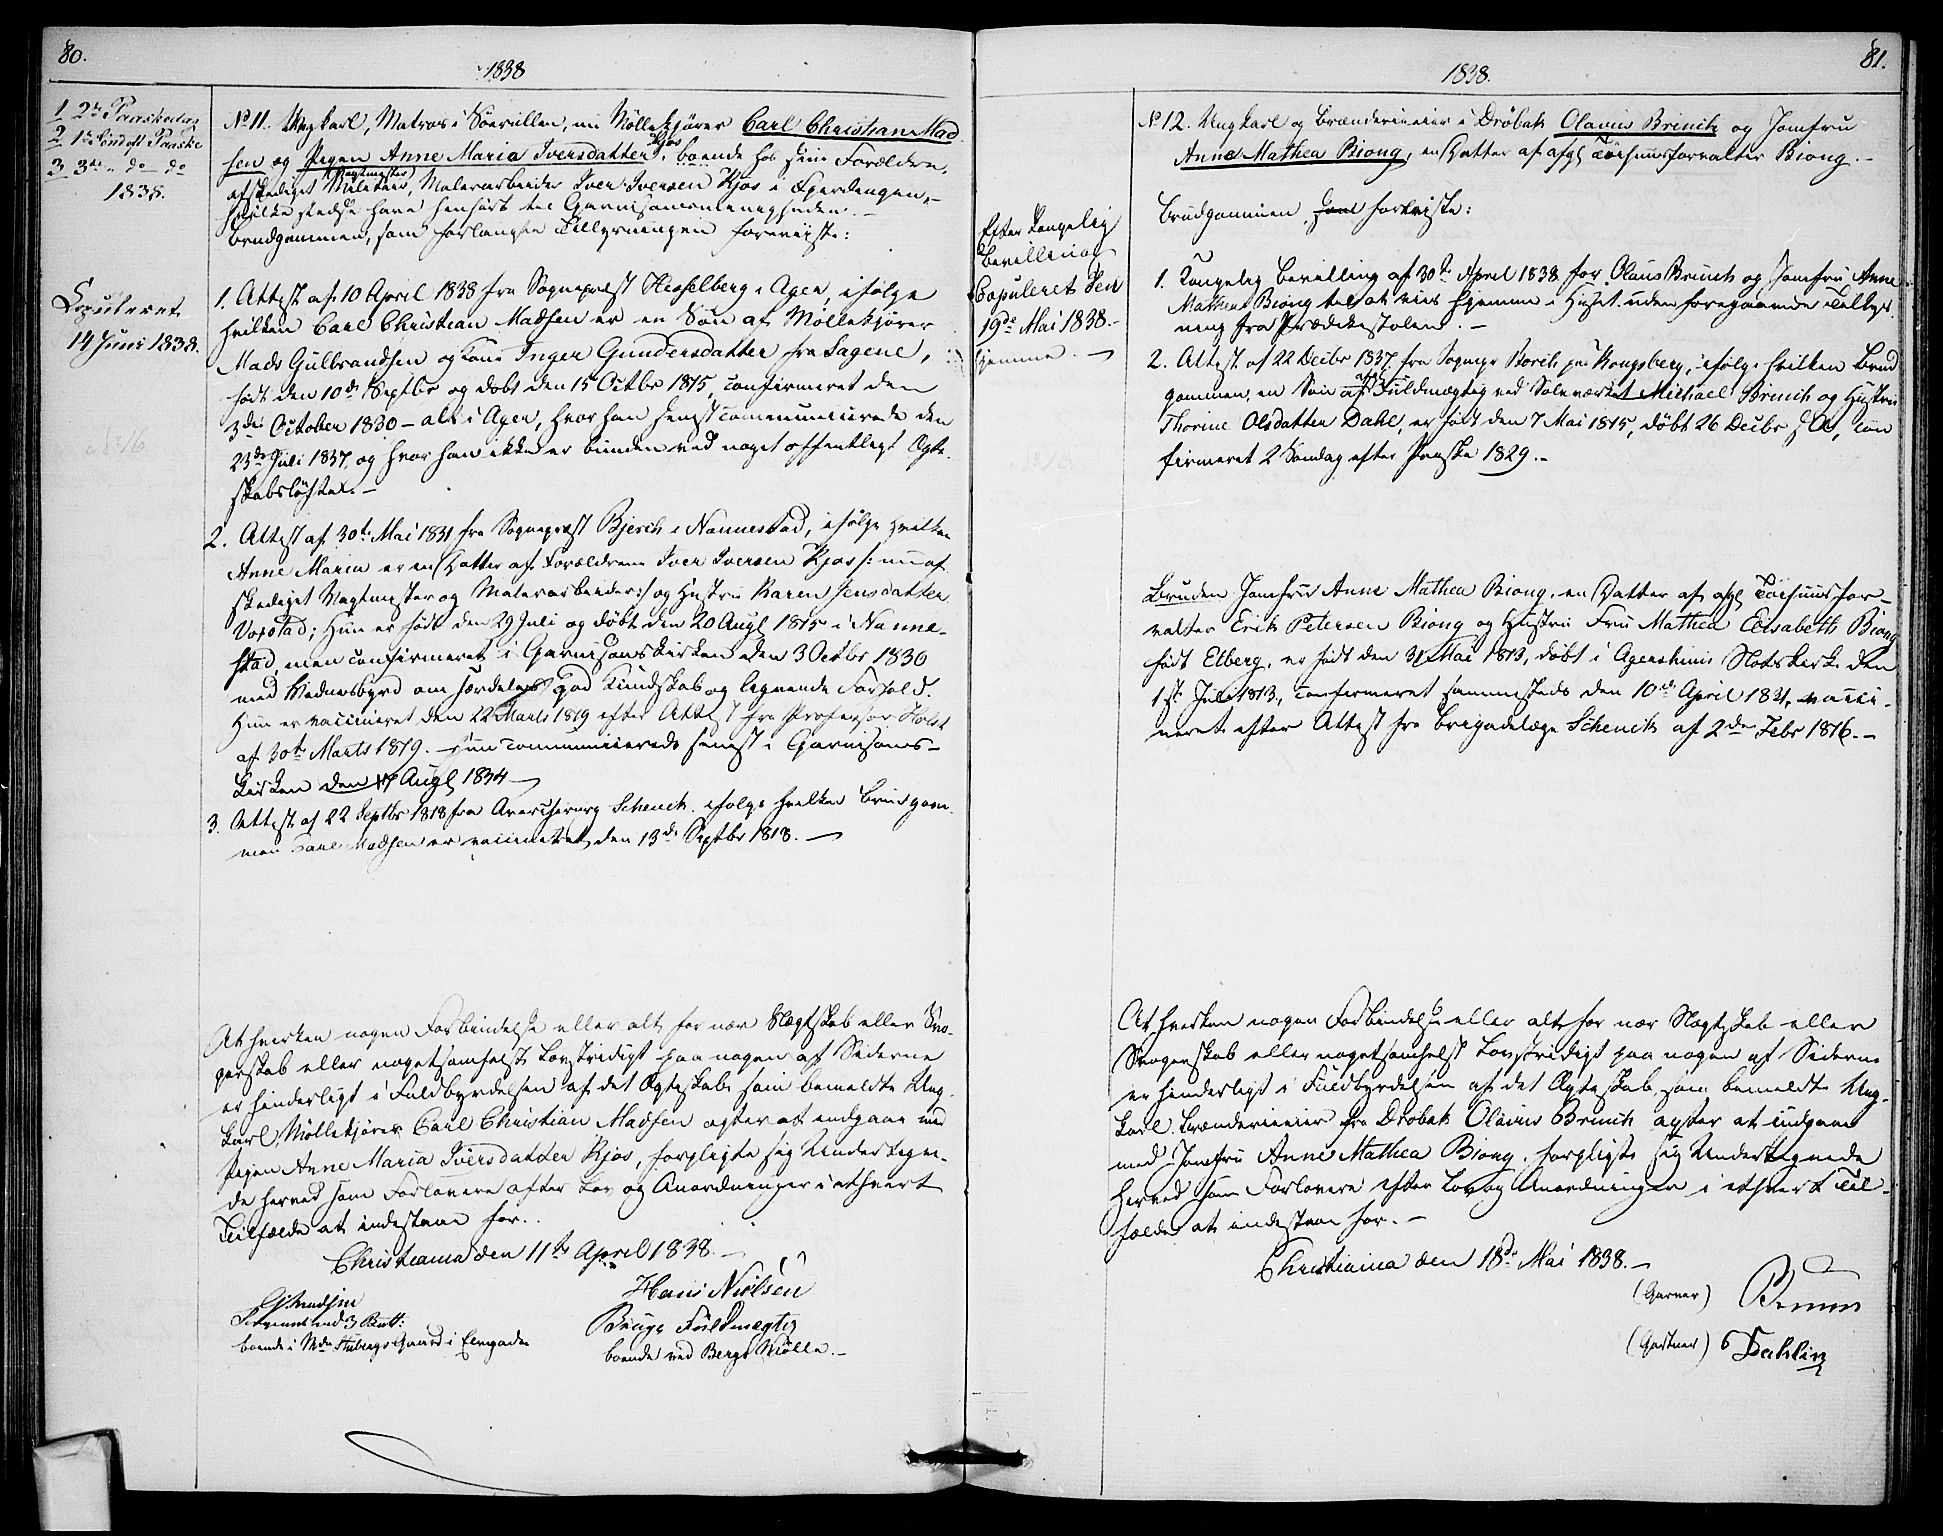 80.
1838
1 2den Paaskedag
2 1ste Søndag eft Paaske
3 3die " do - do
1838.
Copuleret
14 Juni 1838.
No 11. Ungkarl, Matros i Søerullen, nu Møllekjører Carl Christian Mad
sen og Pigen Anne Maria Iversdatter Kjos, boende hos sine Forældre,
afskediget Vagtmester, Malerarbeider Iver Iversen Kjos i
hvilke stedse have henhørt til Garnisonsmenigheden. -
Brudgommen, som forlangte Tillysningen foreviiste:
1. Attest af 10 April 1838 fra Sognepræst Hesselberg i Ager, ifølge
hvilken Carl Christian Madsen er en Søn af Møllekjører
Mads Gulbrandsen og Kone Inger Gundersdatter fra Sagene,
født den 10de Septbr og døbt den 15 Octbr 1815, confirmeret den
3die October 1830 - alt i Ager, hvor han senest communicerede den
23de Juli 1837, og hvor han ikke er bunden ved noget offentligt Ægte-
skabsløfte. -
2. Attest af 30te Mai 1831 fra Sognepræst Bjerch i Nannestad, ifølge hvilken
Anne Maria er en Datter af Forældrene Iver Iversen Kjos /: nu af
skediget Vagtmester og Malerarbeider :/ og Hustru Karen Jensdatter
Vorstad; Hun er født den 29 Juli og døbt den 20 Augt 1815 i Nanne-
stad, men confirmeret i Garnisonskirken den 3 Octbr 1830
med Vidnesbyrd om særdeles god Kundskab og lignende Forhold.
Hun er vaccineret den 22 Marts 1819 efter Attest fra Professor Holst
af 30te Marts 1819. - Hun communicerede senest i Garnisons-
Kirken den 17 Augt 1834 -
3. Attest af 22 Septbr 1818 fra Schenck, ifølge hvilken Brudgom-
men Carl Madsen er vaccineret den 13de Septbr 1818. -
At hverken nogen Forbindelse eller alt for nær Slægtskab eller Svo-
gerskab eller nogetsomhelst Lovstridigt paa nogen af Siderne
er hinderligt i Fuldbyrdelsen af det Ægteskab som bemeldte Ung-
karl, Møllekjører Carl Christian Madsen agter at indgaae med
Pigen Anne Maria Iversdatter Kjos, forpligte sig Undertegne-
de herved som Forlovere efter Lov og Anordninger i ethvert
Tilfælde at indestaae for.
Christiania den 11te April 1838. -
boende i Gaard i
Hans Nielsen
Fuldmægtig
boende ved Bergs Mølle. -
81.
1838.
Efter Kongelig
Bevilling
Copuleret den
19de Mai 1838. -
hjemme. -
No 12. Ungkarl og Brænderieier i Drøbak Olavus Brinch og Jomfru
Anne Mathea Biong, en Datter af afg. Tøihuusforvalter Biong. -
Brudgommen, foreviste:
1. Kongelig Bevilling af 30te April 1838 for Olaus Brinch og Jomfru Anne
Mathea Biong til at vies hjemme i Huset uden foregaaende Tillys-
ning fra Prædikestolen. -
2. Attest af 22 Decbr 1837 fra Sognepr Borch paa Kongsberg, ifølge hvilken Brud
gommen, en Søn af afg. Fuldmægtig ved Sølvværket Michael Brinch og Hustru
Thorine Olsdatter Dahl, er født den 7 Mai 1815, døbt 26 Decbr s. A., con
firmeret 2 Søndag efter Paaske 1829. -
Bruden Jomfru Anne Mathea Biong, en Datter af afg Tøihuusfor-
valter Erik Petersen Biong og Hustru Fru Mathea Elisabeth Biong
født Elberg, er født den 31 Mai 1813, døbt i Agershuus Slotskirke den
1ste Juli 1813, confirmeret sammesteds den 10de April 1831, vacci-
neret efter Attest fra Brigadelæge Schenck af 2den Febr 1816. -
At hverken nogen Forbindelse eller alt for nær Slægtskab eller
Svogerskab eller nogetsomhelst Lovstridigt paa nogen af Siderne
er hinderligt i Fuldbyrdelsen af det Ægteskab, som bemeldte Ung-
karl Brænderieier fra Drøbak Olavus Brinch agter at indgaae
med Jomfru Anne Mathea Biong, forpligte sig Undertegnede
herved som Forlovere efter Lov og Anordninger i ethvert Til-
fælde at indestaae for. -
Christiania den 18de Mai 1838. -
(Garver)
(Gartner) Dahlin